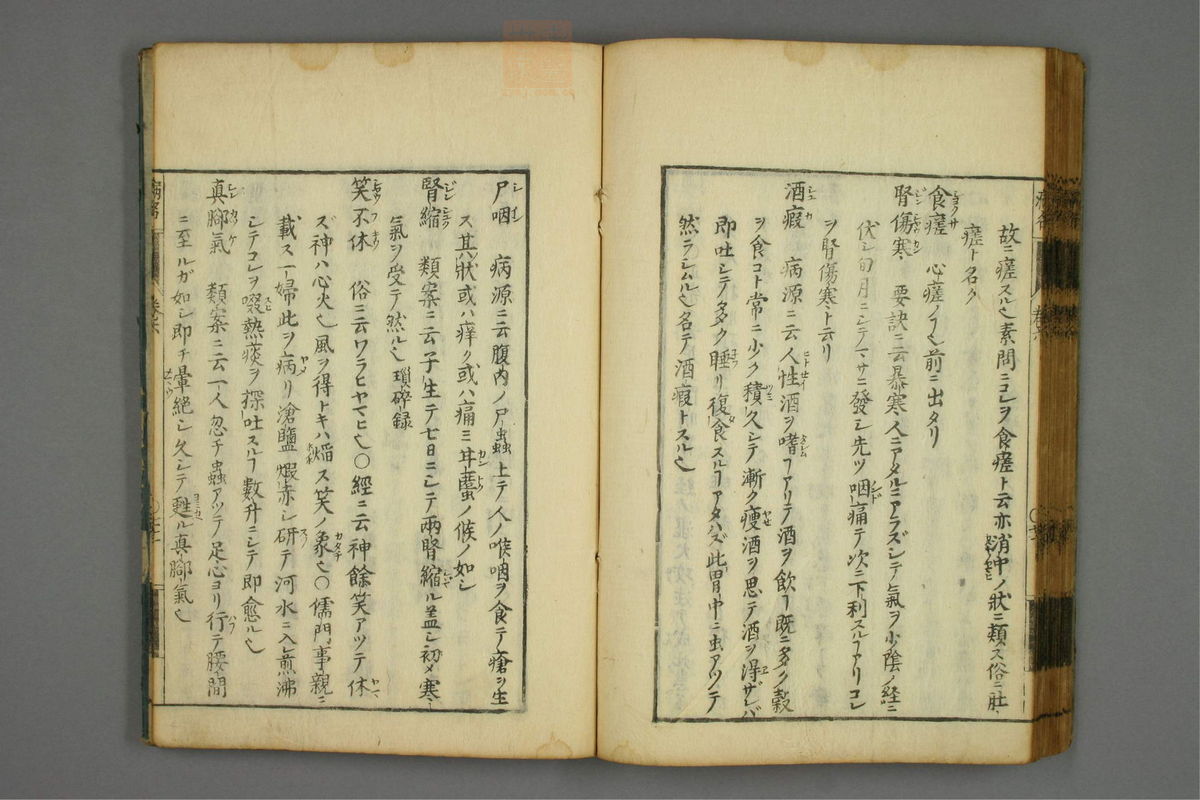 故ニ瘥スル也素問ニコレヲ食㾂ト云亦消中ノ狀ニ類ス俗ニ肚
㾂ト名ク
食㾂 心㾂ノ下也前ニ出タリ
腎傷寒 要訣ニ云暴寒人ニアタルニアラズシテ氣ヲ少陰ノ経ニ
伏シ旬月ニシテマサニ發シ先ツ咽痛テ次ニ下利スルヿアリコレ
ヲ腎傷寒ト云リ
酒瘕 病源ニ云人性酒ヲ嗜ヿアリテ酒ヲ飲ヿ既ニ多ク穀
ヲ食コト常ニ少ク積久シテ漸ク痩酒ヲ思テ酒ヲ得ザレバ
即吐シテノ多ク睡リ復食スルヿアタハズ此胃中ニ虫アツテ
然ラシムル也名テ酒瘕トスル也
尸咽 病源ニ云腹内ノ尸蟲上テ人ノ喉咽ヲ食テ瘡ヲ生
ス其狀或ハ痒ク或ハ痛ミ䘌ノ候ノ如シ
腎縮 類案ニ云子生テ七日ニシテ兩腎縮ル盖シ初メ寒
氣ヲ受テ然ル也 瑣碎録
笑不休 俗ニ云ワラヒヤマヒ也〇經ニ云神餘笑アツテ休
ズ神ハ心火也風ヲ得トキハ焰ス笑ノ象也〇儒門事親ニ
載ス一婦此ヲ病リ滄鹽煆赤シ研テ河水ニ入煎沸
シテコレヲ啜熱痰ヲ探吐スルヿ數升ニシテ即愈ル也
真腳氣 類案ニ云一人忽チ蟲アツテ足心ヨリ行テ腰間
ニ至ルガ如シ即チ暈絶シ久シテ甦ル真腳氣也